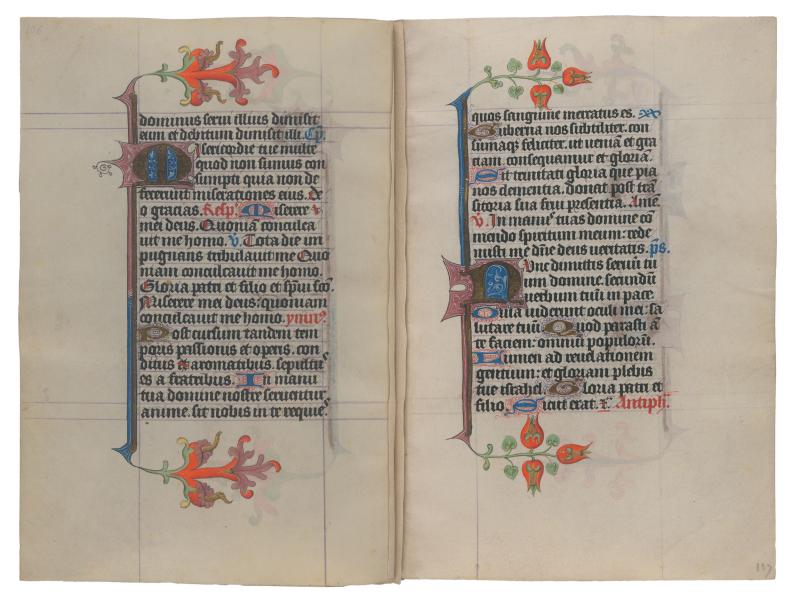 106
dominus serui illius dimisit
eum et debitum dimisit illi. Cp̄.
Misericordie tue multe
quod non sumus con
sumpti quia non de
fecerunt miserationes eius. De
o gracias. Resp. Miserere
mei deus. Quoniā conculca
uit me homo. v̄. Tota die im
pugnans tribulauit me Quo
niam conculcauit me homo.
Gloria patri et filio et sp̄ui scō.
Miserere mei deus: quoniam
conculcauit me homo. ymnꝰ.
Post cursum tandem tem
poris passionis et operis. con
ditus et aromatibus. sepultus
es a fratribus. In manu
tua domine nostre seruentur
anime. sit nobis in te requie
quos sanguine mercatus es.
Guberna nos subtiliter. con
sumaqꝫ feliciter. ut veniā et gra
ciam. consequamur et gloriā.
Sit trinitati gloria que pia
nos clementia. donat post trā
sitoria sua frui presentia. Amē
v̄. In manuˢ tuas domine cō
mendo spiritum meum: rede
misti me dn̄e deus ueritatis. p̄s.
Nunc dimittis seruū tu
um domine. secundū
uerbum tuū in pace
Quia uiderunt oculi mei: sa
lutare tuū Quod parasti ā
te faciem: omniū populorū.
Lumen ad reuelationem
gentium: et gloriam plebis
tue israhel. Gloria patri et
filio. Sicut erat. Antiph.
117